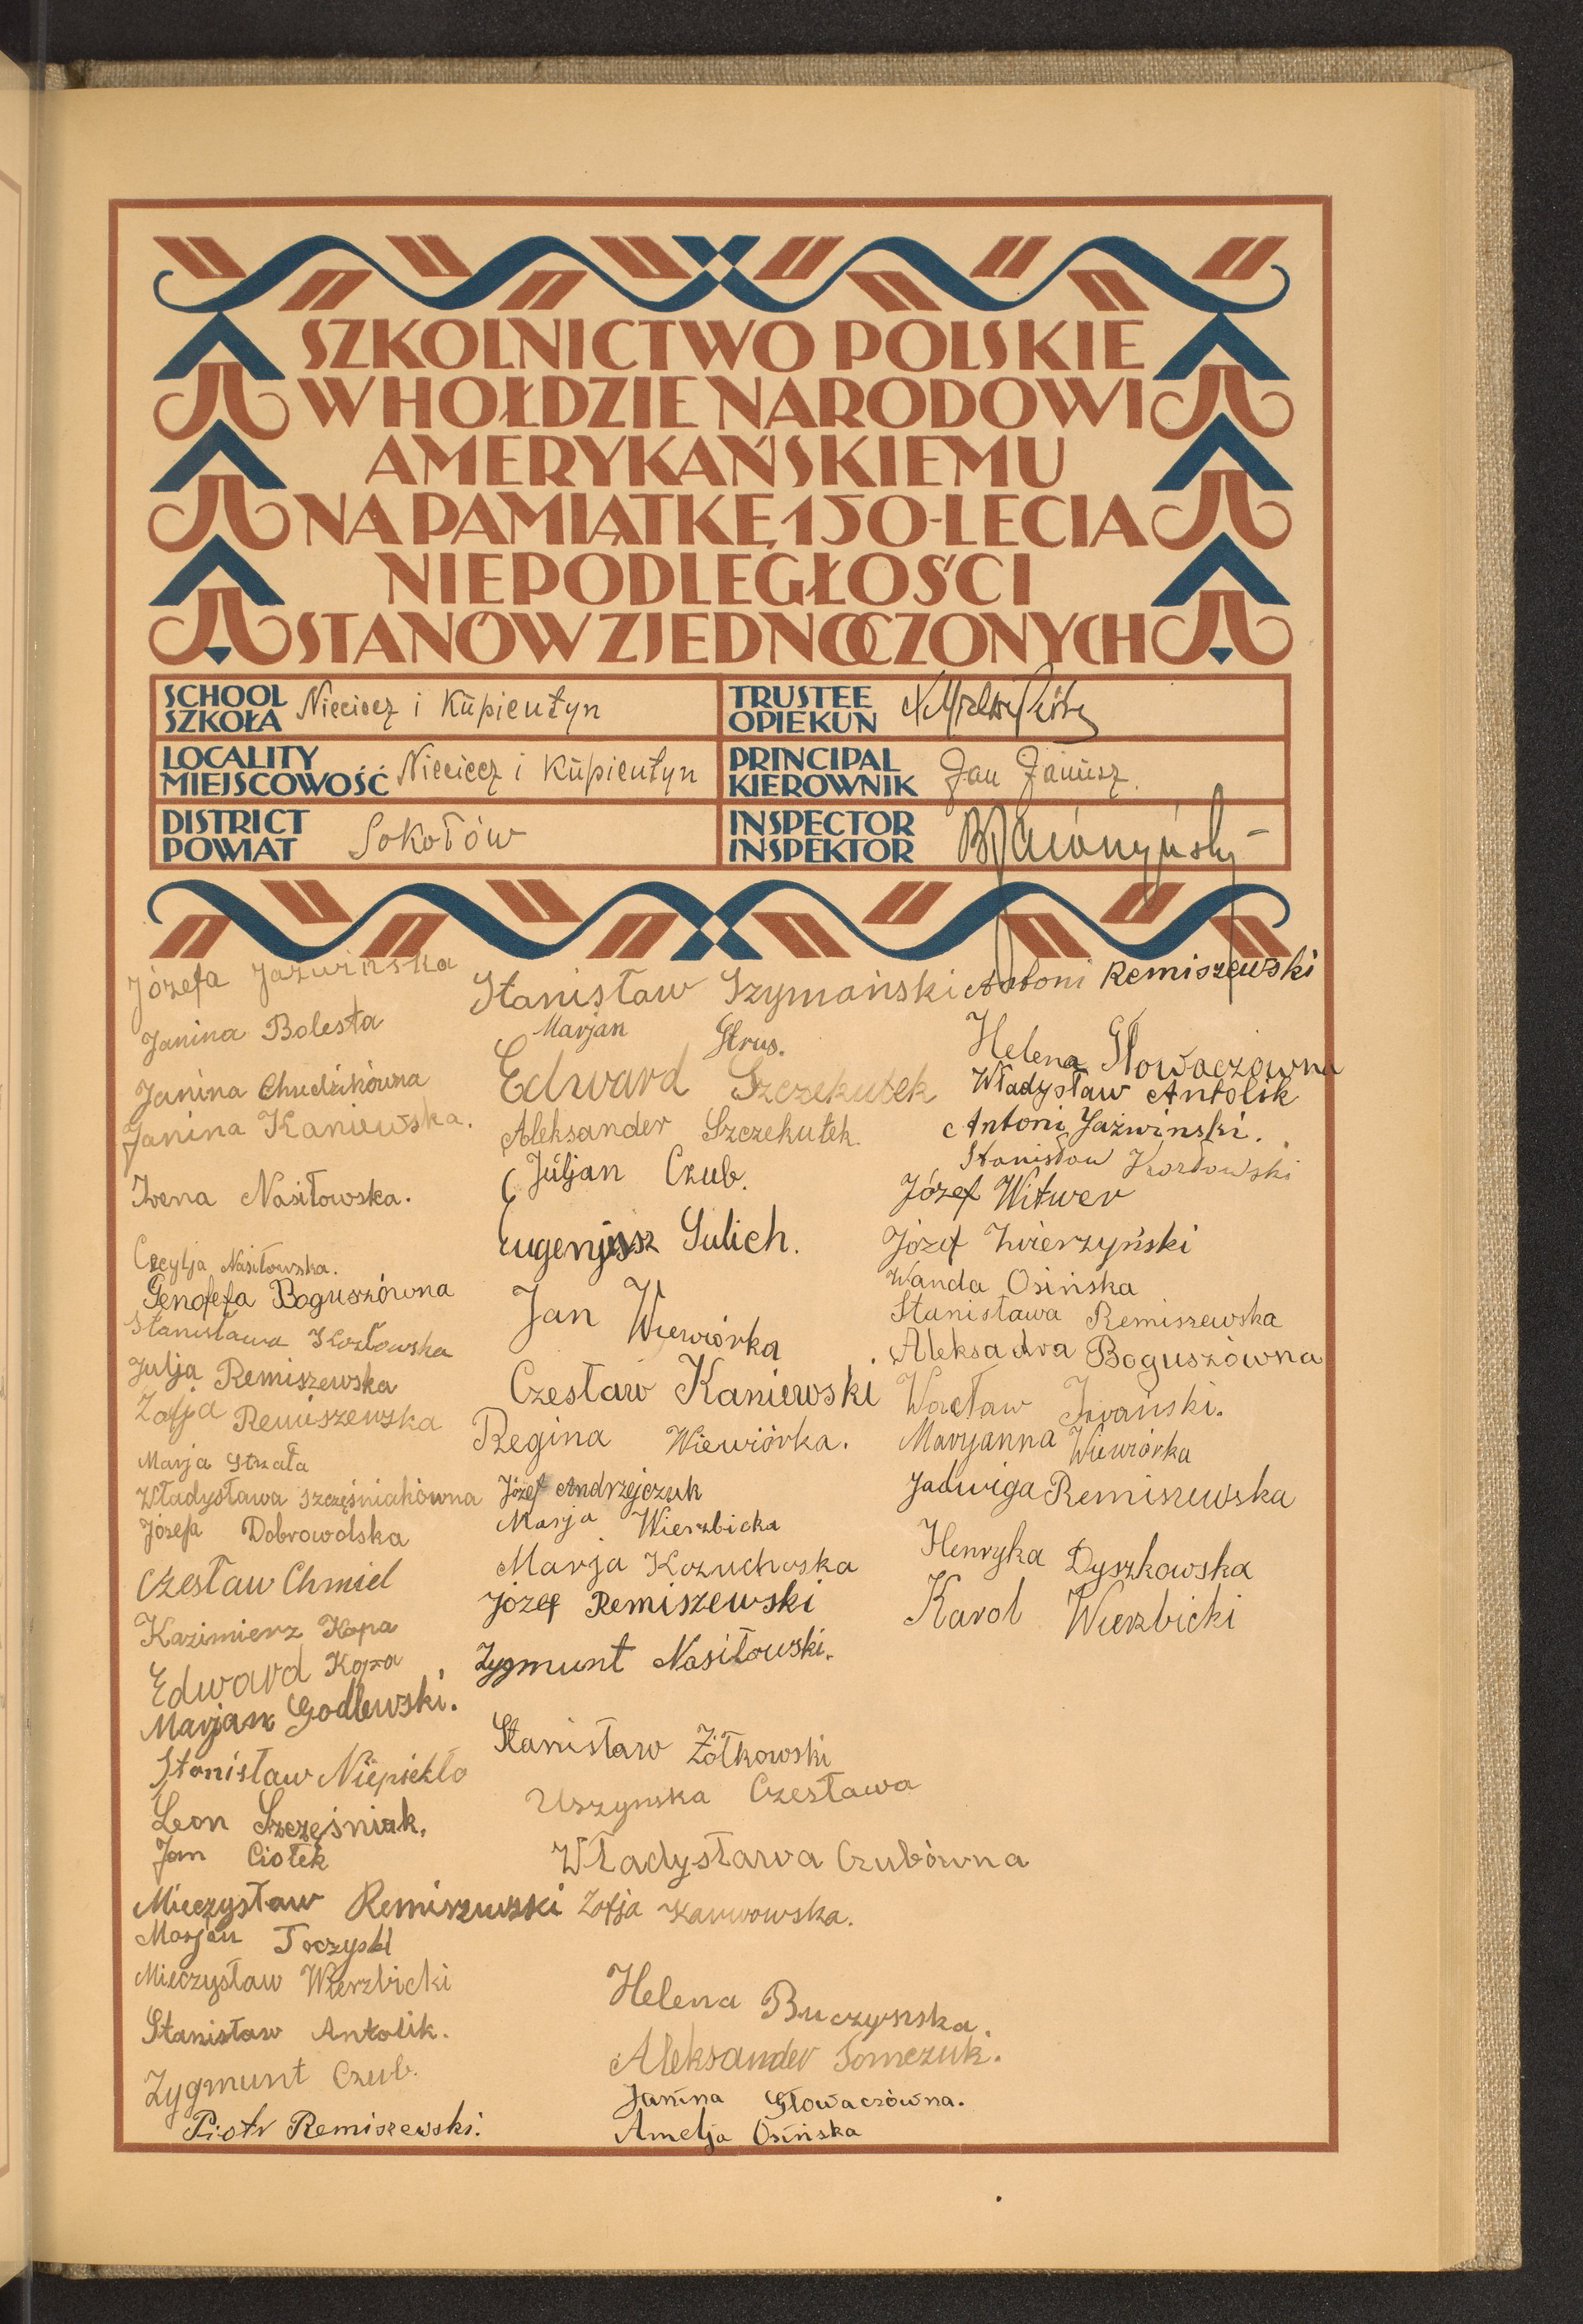 SZKOLNICTWO POLSKIE
W HOŁDZIE NARODOWI
AMERYKAŃSKIEMU
NA PAMIĄTKĘ 150-LECIA
NIEPODLEGŁOŚCI
STANÓW ZJEDNOCZONYCH
SCHOOL
SZKOŁA
Nieciecz i Kupientyn
TRUSTEE
OPIEKUN
LOCALITY
MIEJSCOWOŚĆ
Nieciecz i Kupientyn
PRINCIPAL
KIEROWNIK
Jan Janusz.
DISTRICT
POWIAT
Sokołów
INSPECTOR
INSPEKTOR
Józefa Jaźwińska
Janina Bolesta
Janina Chudzikówna
Janina Kaniewska.
Irena Nasiłowska.
Cecylja Nasiłowska.
Genofefa Boguszówna
Stanisława Kozłowska
Julja Remiszewska
Zofja Remiszewska
Marja Strzała
Władysława Szczęśniakówna
Józefa Dobrowolska
Czesław Chmiel
Kazimierz Kopa
Edward Kopa
Marjan Godlewski.
Stanisław Niepiekło
Leon Szczęśniak.
Jan Ciołek
Mieczysław Remiszewski
Marjan Toczyski
Mieczysław Wierzbicki
Stanisław Antolik.
Zygmunt Czub.
Piotr Remiszewski.
Stanisław Szymański
Marjan Strus.
Edward Szczekutek
Aleksander Szczekutek.
Juljan Czub.
Eugenjusz Sulich.
Jan Wiewiórka
Czesław Kaniewski
Regina Wiewiórka.
Józef Andrzejczuk
Marja Wierzbicka
Marja Kożuchowska
Józef Remiszewski
Zygmunt Nasiłowski.
Stanisław Żółkowski
Uszynska Czesława
Władysława Czubówna
Zofja Karwowska.
Helena Buczynska.
Aleksander Tomczuk.
Janina Głowaczówna.
Amelja Osińska
Antoni Remiszewski
Helena Głowaczówna
Władysław Antolik
Antoni Jaźwinski.
Stanisław Kozłowski
Józef Witwer
Józef Zwierzyński
Wanda Osińska
Stanisława Remiszewska
Aleksadra Boguszówna
Wacław Iwański.
Maryanna Wiewiórka
Jadwiga Remiszewska
Henryka Dyszkowska
Karol Wierzbicki